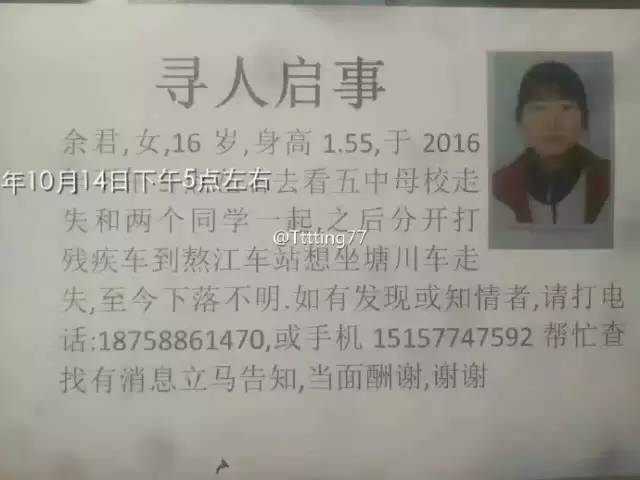 寻人启事
余君,女,16 岁,身高 1.55,于 2016
年10月14日下午5点左右
去看五中母校走
失和两个同学一起,之后分开打
@Tttting77
残疾车到熬江车站想坐塘川车走
失,至今下落不明.如有发现或知情者,请打电
话:18758861470,或手机 15157747592 帮忙查
找有消息立马告知,当面酬谢,谢谢